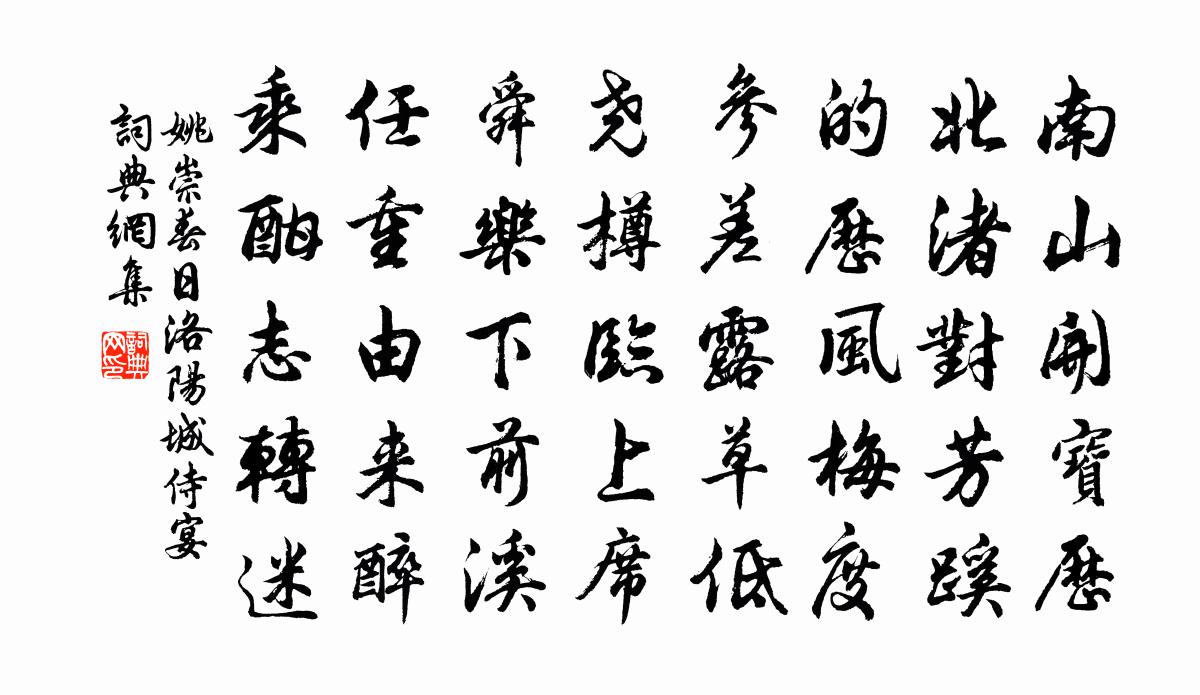 南山開寶歷
北渚對芳蹊
的歷風梅度
參差露草低
尭樽臨上席
舜樂下前溪
任重由来醉
乘酣志轉迷
姚崇春日洛陽城侍宴
詞典網集
詞典网印